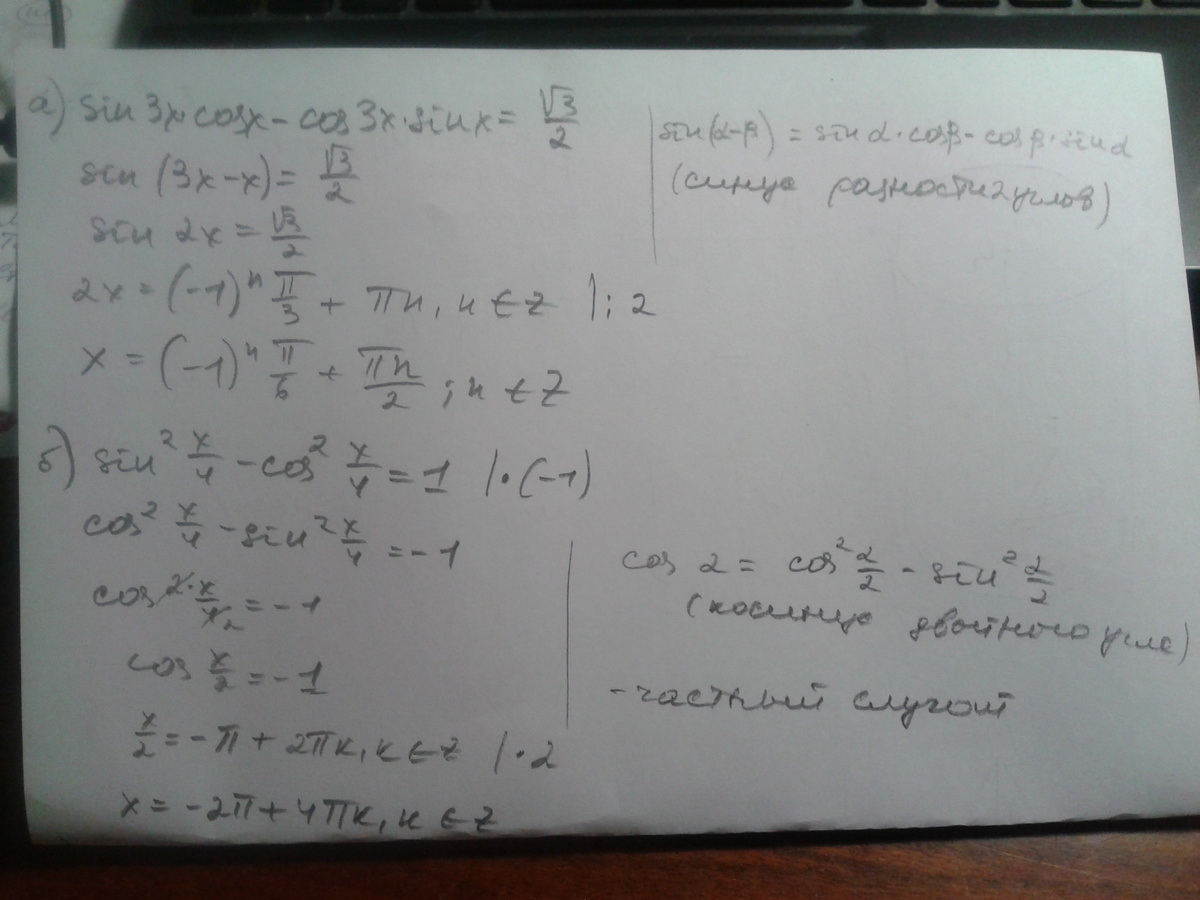 а) sin 3x·cosx − cos 3x·sin x = √3/2
sin (3x−x) = √3/2
sin 2x = √3/2
2x = (−1)ⁿ π/3 + πn, n ∈ Z |: 2
x = (−1)ⁿ π/6 + πn/2 ; n ∈ Z
sin(α−β) = sin α·cosβ − cos β·sin α
(синус разности 2 углов)
б) sin² x/4 − cos² x/4 = 1 |·(−1)
cos² x/4 − sin² x/4 = −1
cos 2·x/4 2 = −1
cos x/2 = −1
x/2 = −π + 2πk, k ∈ Z |·2
x = −2π + 4πk, k ∈ Z
cos α = cos² α/2 − sin² α/2
(косинус двойного угла)
- частный случай